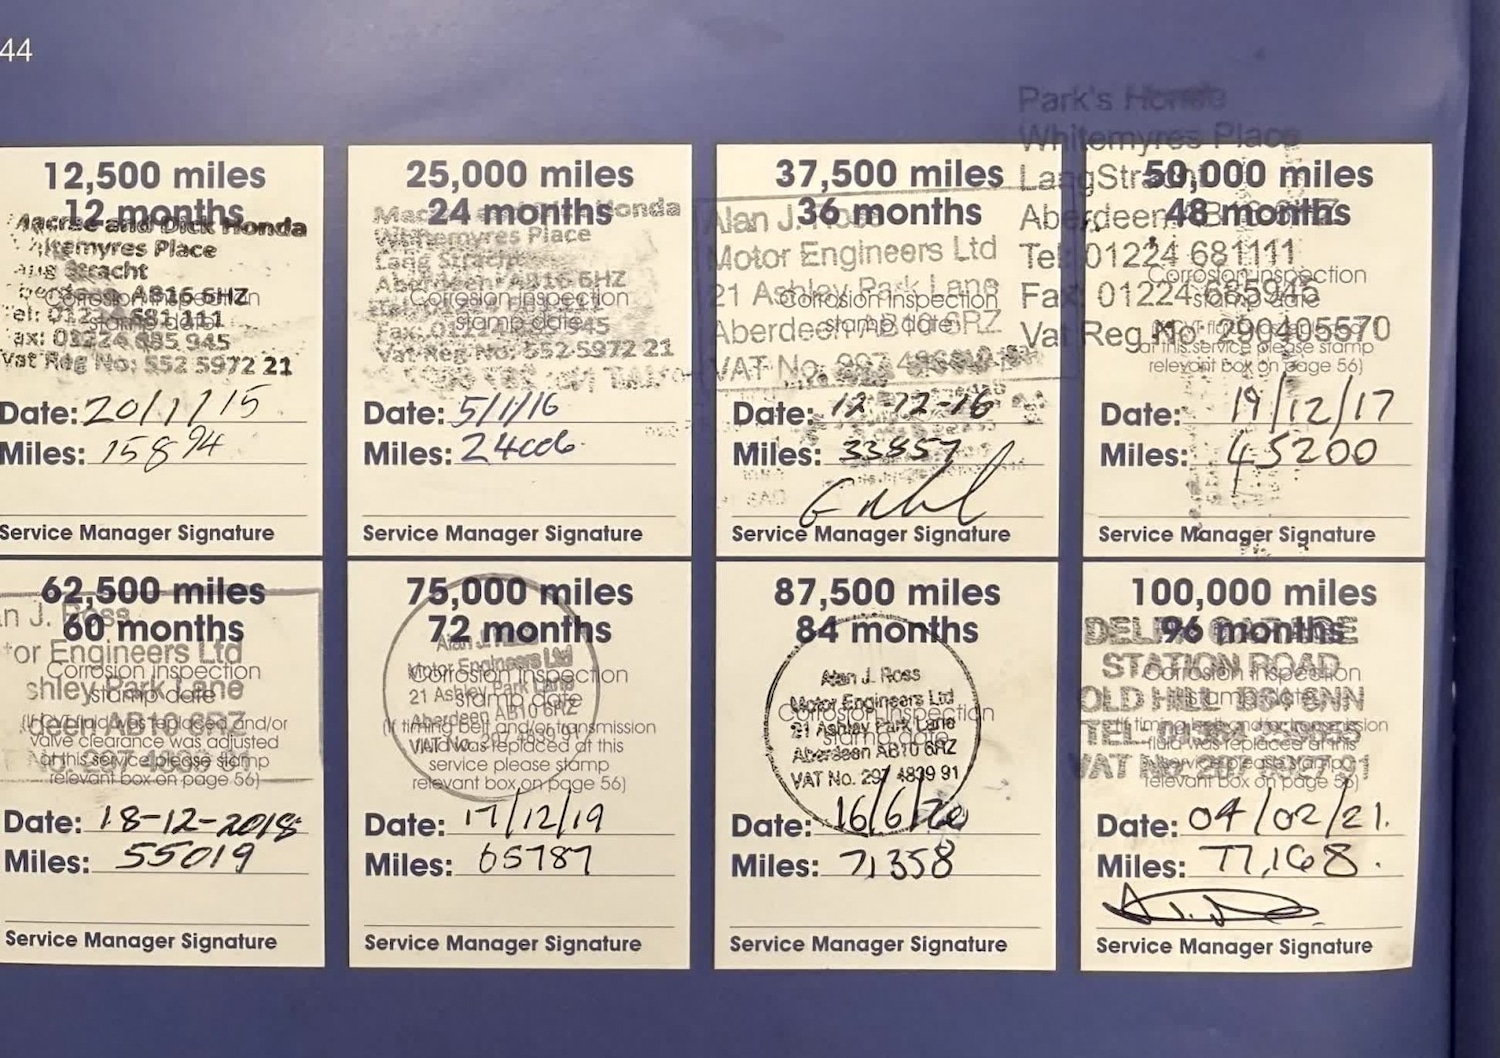 44
12,500 miles
12 months
Macrae and Dick Honda
Whitemyres Place
Lang Stracht
AB16 6HZ
Corrosion inspection
stamp date
Vat Reg No: 552 5972 21
Date: 20/1/15
Miles: 15894
Service Manager Signature
25,000 miles
24 months
Honda
Whitemyres Place
Lang Stracht
Aberdeen AB16 6HZ
Corrosion inspection
stamp date
Vat Reg No: 552 5972 21
Date: 5/1/16
Miles:
Service Manager Signature
37,500 miles
36 months
Alan J. Ross
Motor Engineers Ltd
21 Ashley Park Lane
Corrosion inspection
stamp date
Aberdeen AB10 6RZ
VAT No.
Date: 12-12-16
Miles: 33857
Service Manager Signature
Park's Honda
Whitemyres Place
Lang Stracht
50,000 miles
48 months
Aberdeen
Tel: 01224 681111
Corrosion inspection
stamp date
Fax: 01224 685945
Vat Reg No: 290405570
at this service please stamp
relevant box on page 56)
Date: 19/12/17
Miles: 45200
Service Manager Signature
62,500 miles
60 months
n J. Ross
tor Engineers Ltd
Corrosion inspection
stamp date
shley Park Lane
deen AB10 6RZ
valve clearance was adjusted
at this service please stamp
relevant box on page 56)
Date: 18-12-2018
Miles: 55019
Service Manager Signature
75,000 miles
72 months
Alan J. Ross
Motor Engineers Ltd
Corrosion inspection
stamp date
21 Ashley Park Lane
Aberdeen AB10 6RZ
(If timing belt and/or transmission
fluid was replaced at this
VAT No.
service please stamp
relevant box on page 56)
Date: 17/12/19
Miles: 65787
Service Manager Signature
87,500 miles
84 months
Alan J. Ross
Motor Engineers Ltd
Corrosion inspection
stamp date
21 Ashley Park Lane
Aberdeen AB10 6RZ
VAT No. 297 4839 91
Date: 16/6/20
Miles: 71358
Service Manager Signature
100,000 miles
96 months
STATION ROAD
Corrosion inspection
OLD HILL B64 6NN
TEL
VAT No
fluid was replaced at this
service please stamp
relevant box on page 56)
Date: 04/02/21.
Miles: 77,168.
Service Manager Signature